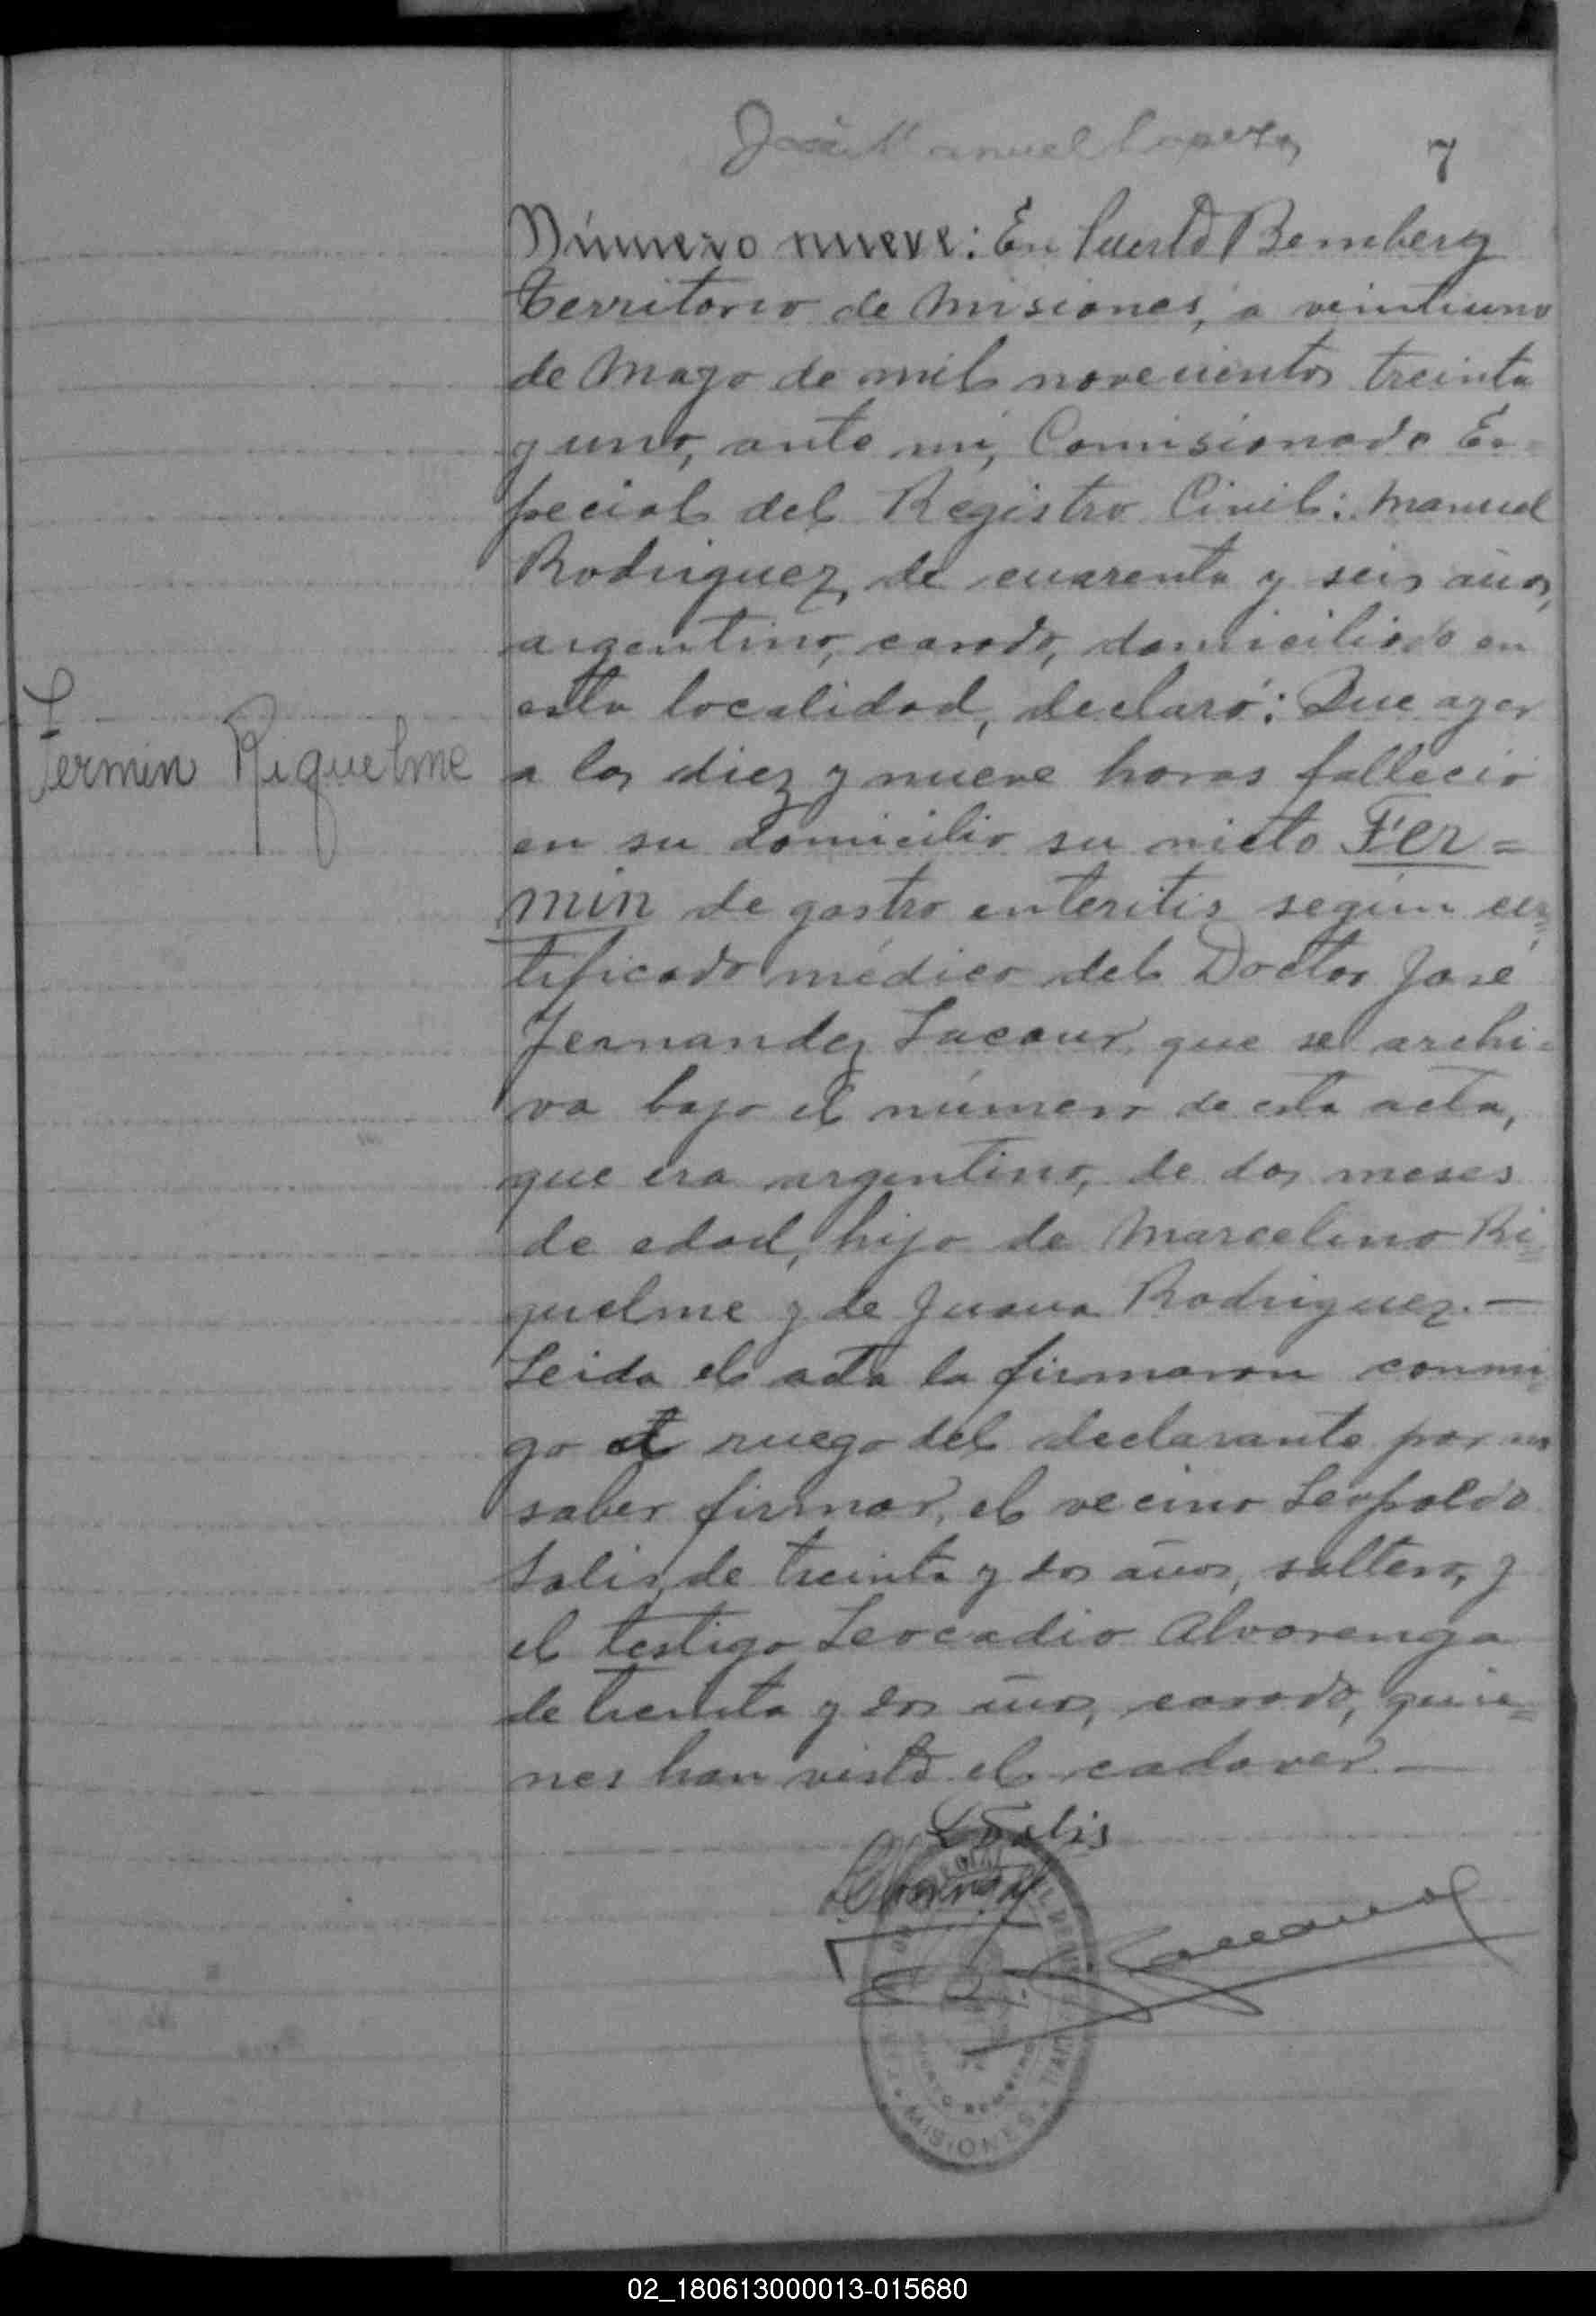 José Manuel Lopez
7
Número nueve: En Puerto Bemberg
territorio de Misiones, a veintiuno
de Mayo de mil novecientos treinta
y uno, ante mi, Comisionado Es=
pecial del Registro Civil: Manuel
Rodriguez, de cuarenta y seis años,
argentino, casado, domiciliado en
esta localidad, declaró: Que ayer
Fermin Riquelme
a las diez y nueve horas falleció
en su domicilio su nieto Fer=
min de gastro enteritis según cer=
tificado médico del Doctor José
Fernandez Lacour, que se archi=
va bajo el número de esta acta,
que era argentino, de dos meses
de edad, hijo de Marcelino Ri=
quelme y de Juana Rodriguez.—
Leida el acta la firmaron conmi=
go a ruego del declarante por no
saber firmar, el vecino Leopoldo
Solis, de treinta y dos años, soltero, y
el testigo Leocadio Alvarenga
de treinta y dos años, casado, quie=
nes han visto el cadaver.—
L Solis
MISIONES
02_180613000013-015680